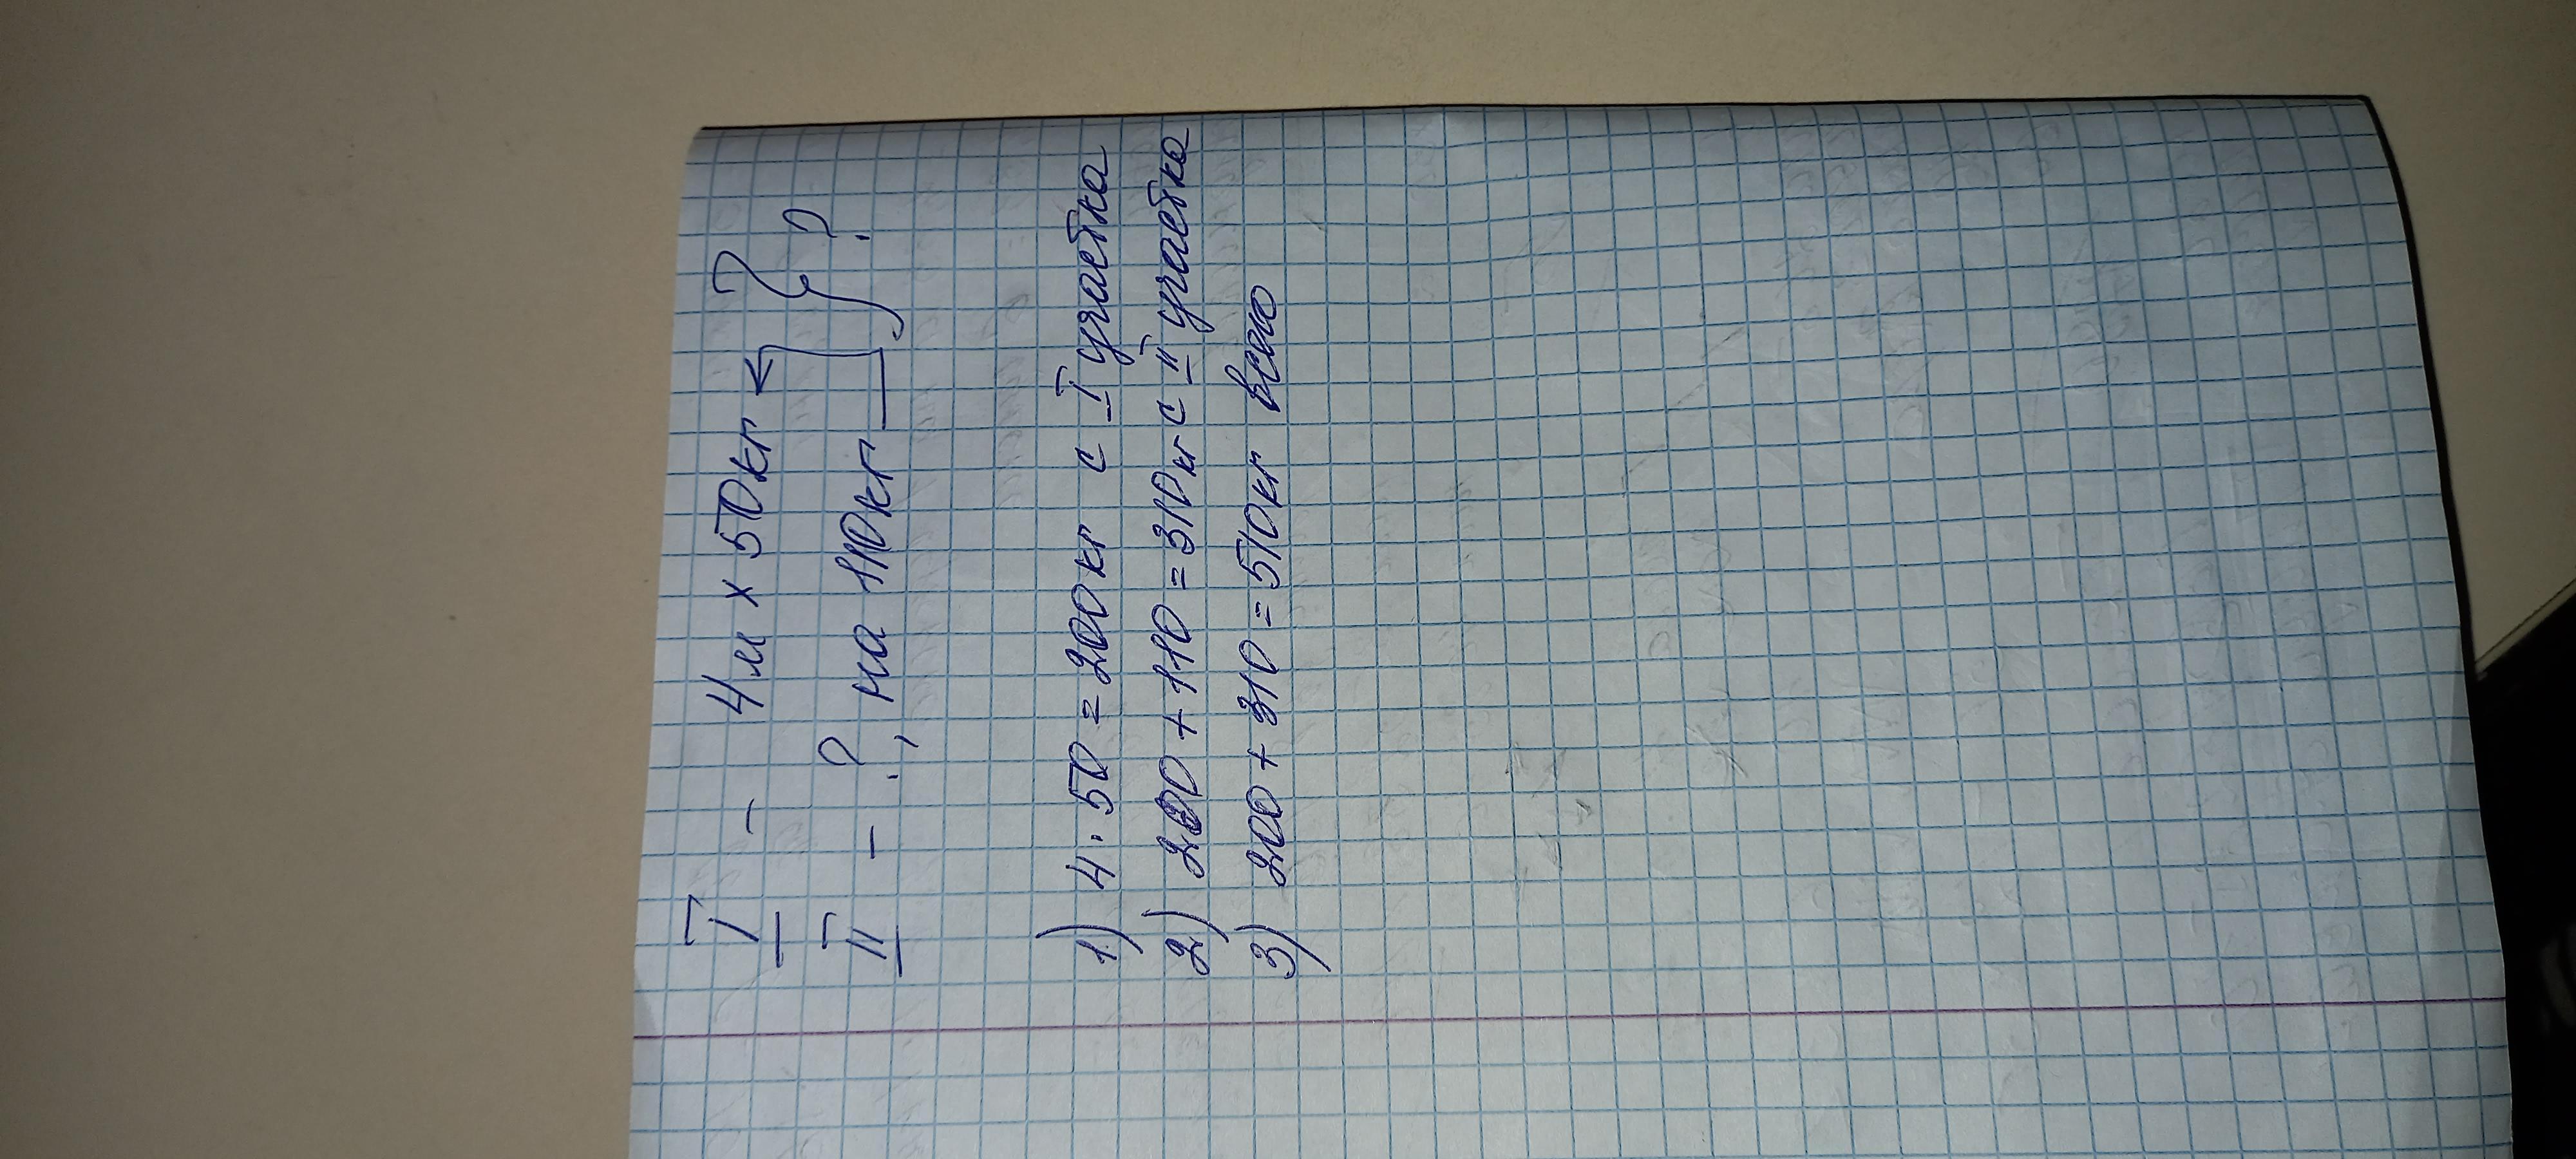 I - 4м х 50кг ?
II - ?, на 110кг ?
1) 4 · 50 = 200кг с I участка
2) 200 + 110 = 310кг с II участка
3) 200 + 310 = 510кг всего